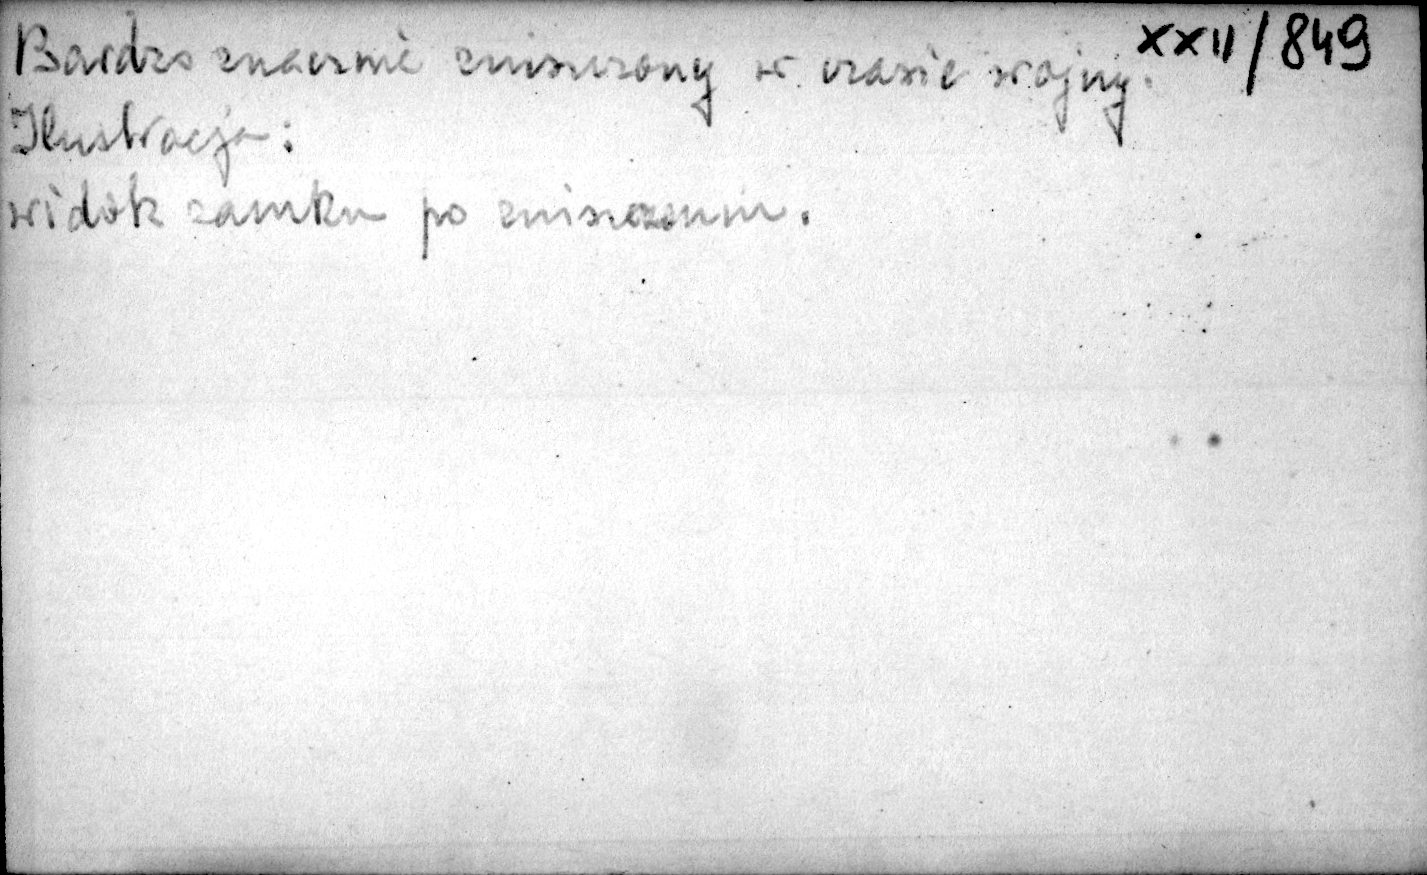 XXII/849
Bardzo znacznie zniszczony w czasie wojny.
Ilustracja:
widok zamku po zniszczeniu.